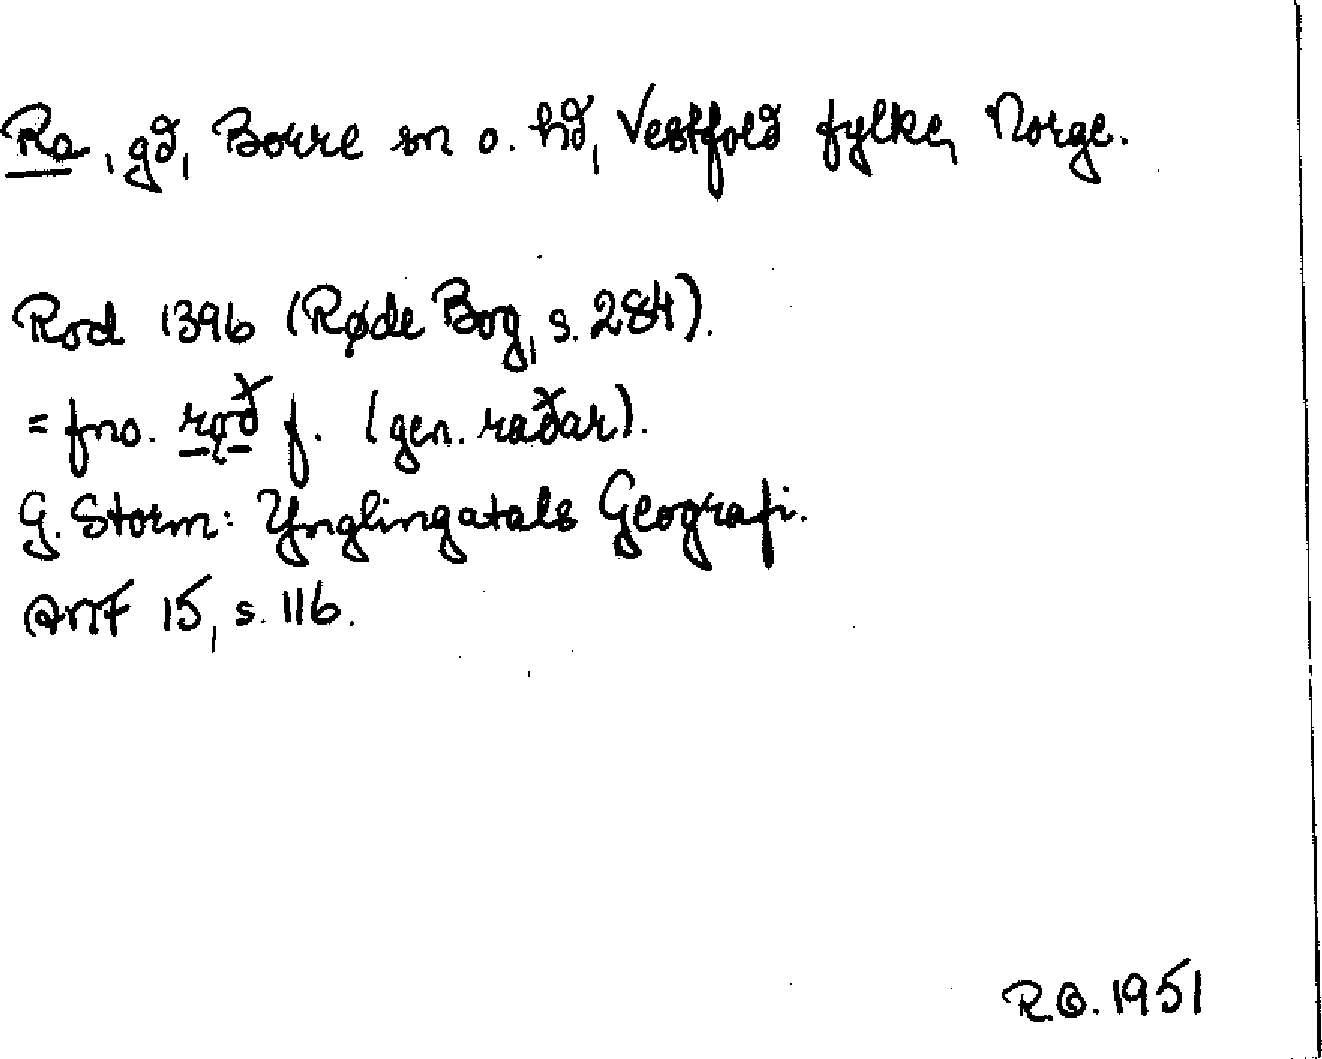 Ra, gd, Borre sn o. hd, Vestfold fylke, Norge.
Rod 1396 (Røde Bog, s. 284).
= fno. rǫð f. (gen. raðar).
G. Storm: Ynglingatals Geografi.
ANF 15, s. 116.
1951